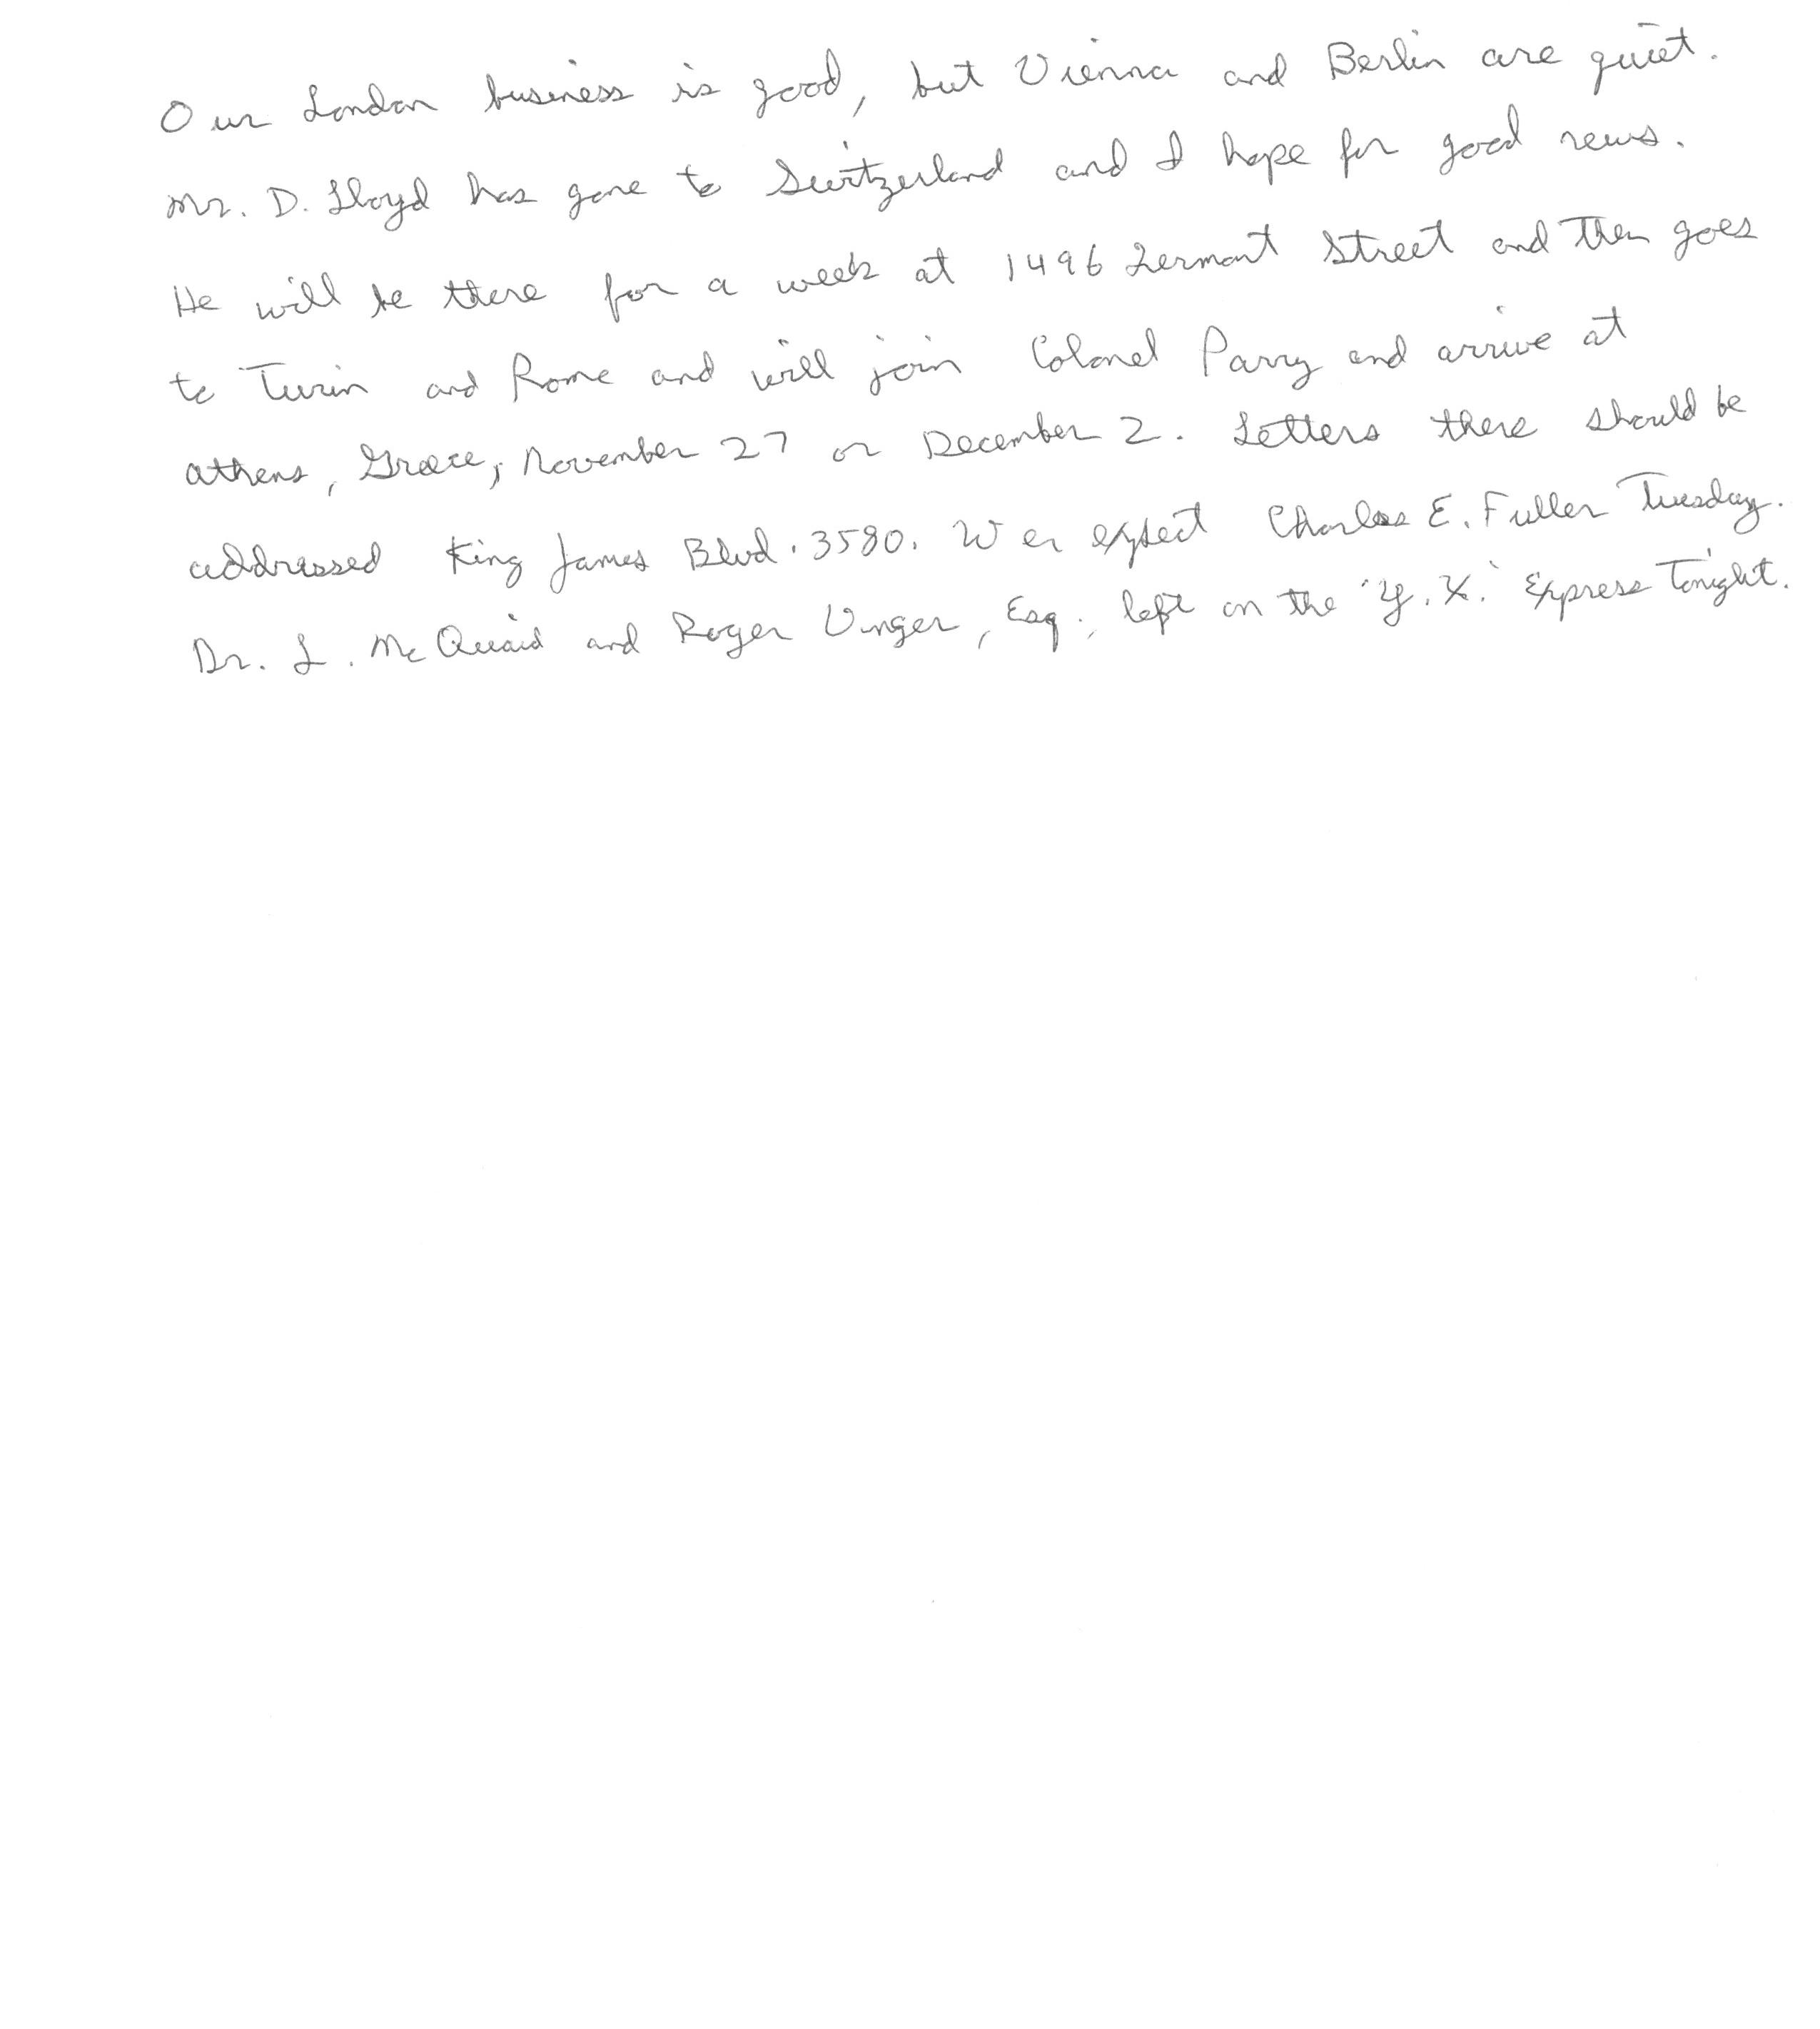 Our London business is good, but Vienna and Berlin are quiet.
Mr. D. Lloyd has gone to Switzerland and I hope for good news.
He will be there for a week at 1496 Zermont Street and then goes
to Turin and Rome and will join Colonel Parry and arrive at
Athens, Greece, November 27 or December 2. Letters there should be
addressed King James Blvd. 3580. We expect Charles E. Fuller Tuesday.
Dr. L. McQuaid and Roger Unger, Esq., left on the "Y.X." Express tonight.